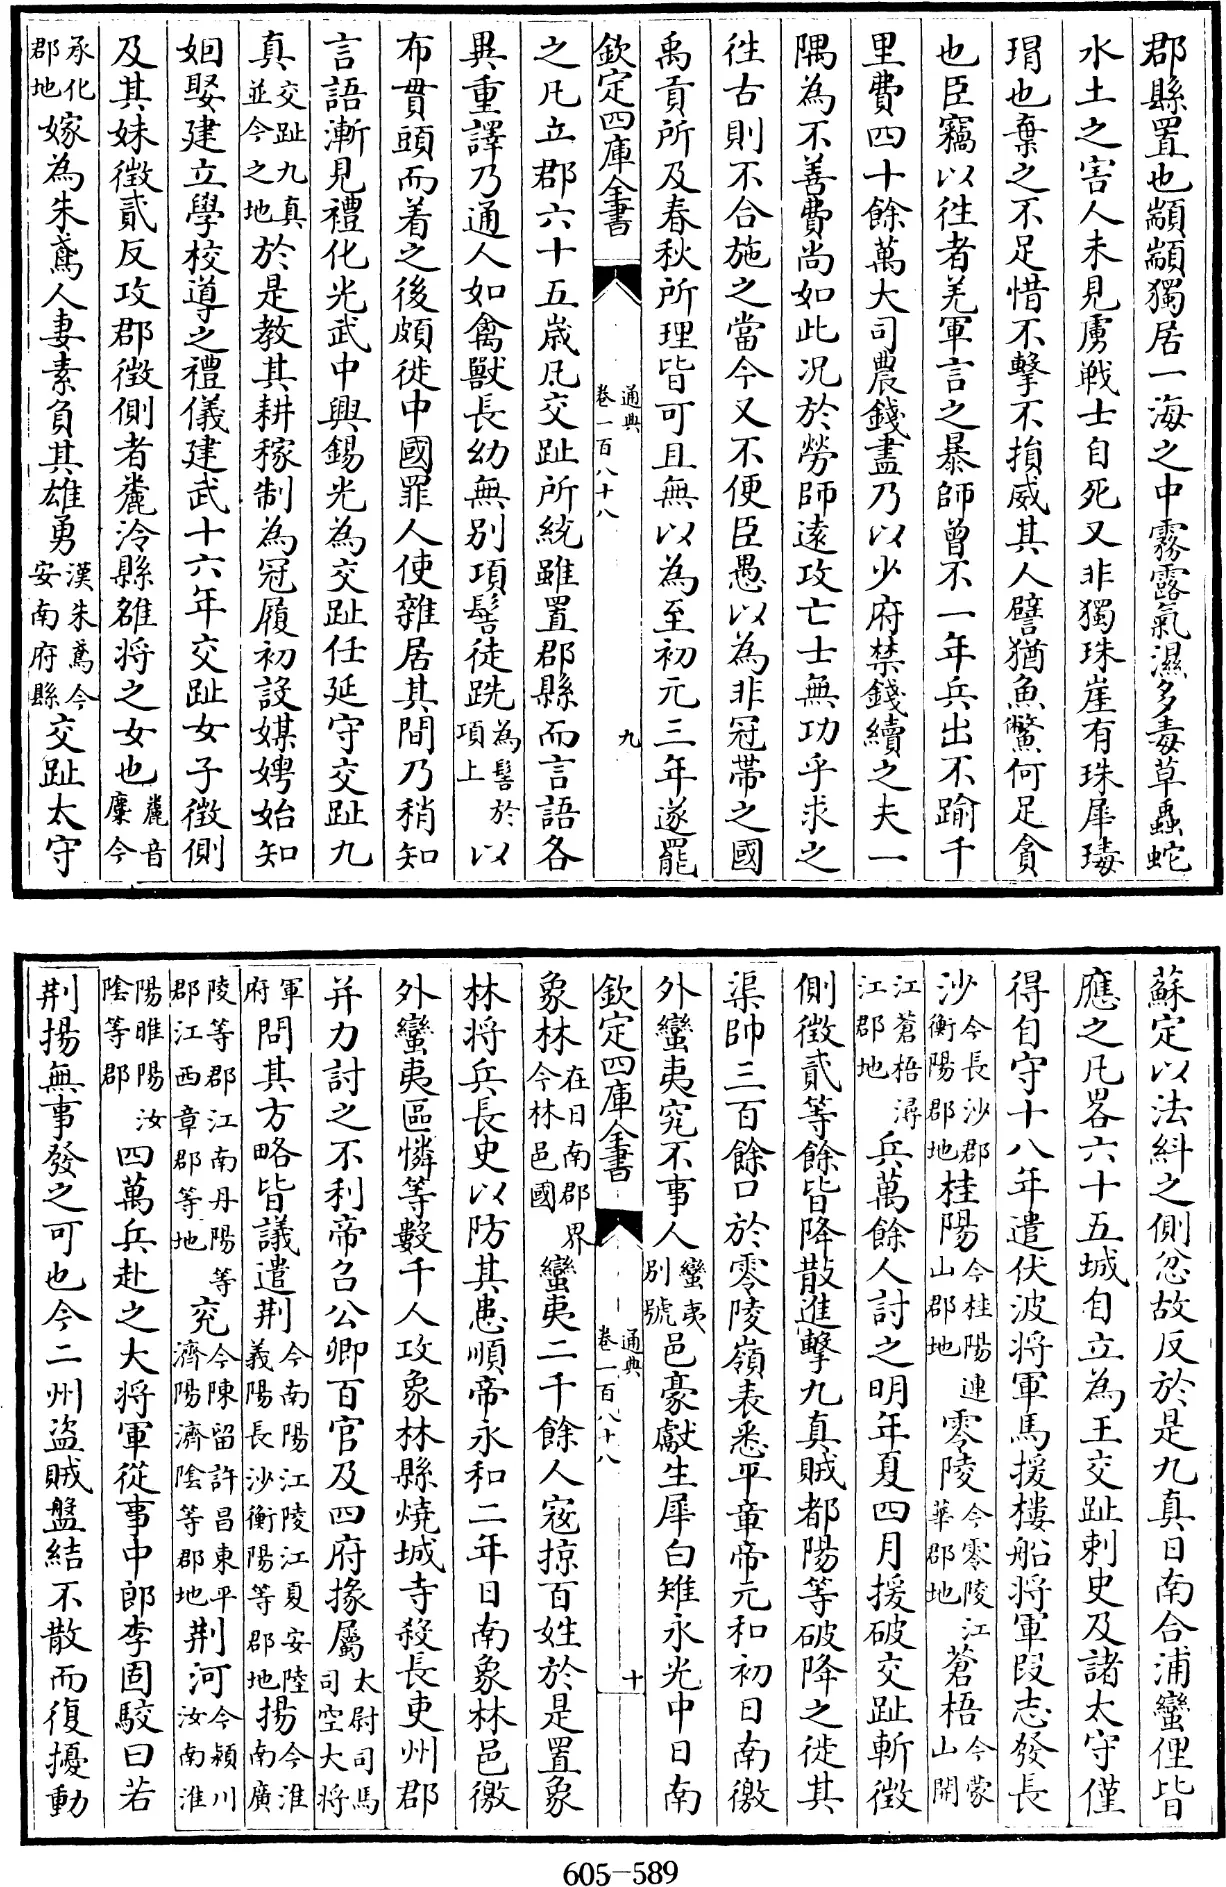 郡縣置也顓顓獨居一海之中霧露氣濕多毒草蟲蛇
水土之害人未見虜戰士自死又非獨珠崖有珠犀瑇
瑁也棄之不足惜不擊不損威其人譬猶魚鱉何足貪
也臣竊以徃者羌軍言之暴師曾不一年兵出不踰千
里費四十餘萬大司農錢盡乃以少府禁錢續之夫一
隅為不善費尚如此况於勞師逺攻亡士無功乎求之
徃古則不合施之當今又不便臣愚以為非冠帶之國
禹貢所及春秋所理皆可且無以為至初元三年遂罷
欽定四庫全書
通典
卷一百八十八
九
之凡立郡六十五歳凡交趾所統雖置郡縣而言語各
異重譯乃通人如禽獸長幼無别項髻徒跣為髻於項上以
布貫頭而着之後頗徙中國罪人使雜居其間乃稍知
言語漸見禮化光武中興錫光為交趾任延守交趾九
真交趾九真並今之地於是教其耕稼制為冠履初設媒娉始知
姻娶建立學校導之禮儀建武十六年交趾女子徵側
及其妹徵貳反攻郡徵側者麊泠縣雒將之女也麊音糜今
承化郡地嫁為朱鳶人妻素負其雄勇漢朱鳶今安南府縣交趾太守
蘇定以法糾之側忿故反於是九真日南合浦蠻俚皆
應之凡畧六十五城自立為王交趾刺史及諸太守僅
得自守十八年遣伏波將軍馬援樓船將軍段志發長
沙今長沙郡衡陽郡地桂陽今桂陽連山郡地零陵今零陵江華郡地蒼梧今蒙山開
江蒼梧潯江郡地兵萬餘人討之明年夏四月援破交趾斬徵
側徵貳等餘皆降散進擊九真賊都陽等破降之徙其
渠帥三百餘口於零陵嶺表悉平章帝元和初日南徼
外蠻夷究不事人蠻夷别號邑豪獻生犀白雉永光中日南
欽定四庫全書
通典
卷一百八十八
十
象林在日南郡界今林邑國蠻夷二千餘人寇掠百姓於是置象
林將兵長史以防其患順帝永和二年日南象林邑徼
外蠻夷區憐等數千人攻象林縣燒城寺殺長吏州郡
并力討之不利帝召公卿百官及四府掾屬太尉司馬司空大將
軍府問其方略皆議遣荆今南陽江陵江夏安陸義陽長沙衡陽等郡地揚今淮南廣
陵等郡江南丹陽等郡江西章郡等地兖今陳留許昌東平濟陽濟陰等郡地荆河今潁川汝南淮
陽睢陽汝陰等郡四萬兵赴之大將軍從事中郎李固駮曰若
荆揚無事發之可也今二州盜賊盤結不散而復擾動
605-589